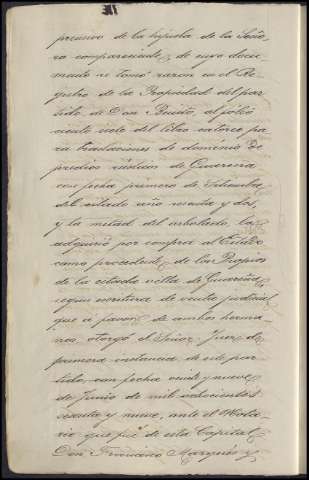 presivo de la hijuela de la Seño-
ra compareciente, de cuyo docu-
mento se tomó razon en el Re-
gistro de la Propiedad del par-
tido de Don Benito, al folio
ciento siete del libro catorce pa-
ra traslaciones de dominio de
predios rústicos de Guareña
con fecha primero de Setiembre
del citado año sesenta y dos,
y la mitad del arbolado, la
adquirió por compra al Estado
como procedente de los Propios
de la citada villa de Guareña,
segun escritura de venta judicial
que a favor de ambos herma-
nos otorgó el Señor Juez de
primera instancia de este par-
tido, con fecha veinte y nueve
de junio de mil ochocientos
sesenta y nueve, ante el Nota-
rio que fué de esta Capital
Don Francisco Marqués y